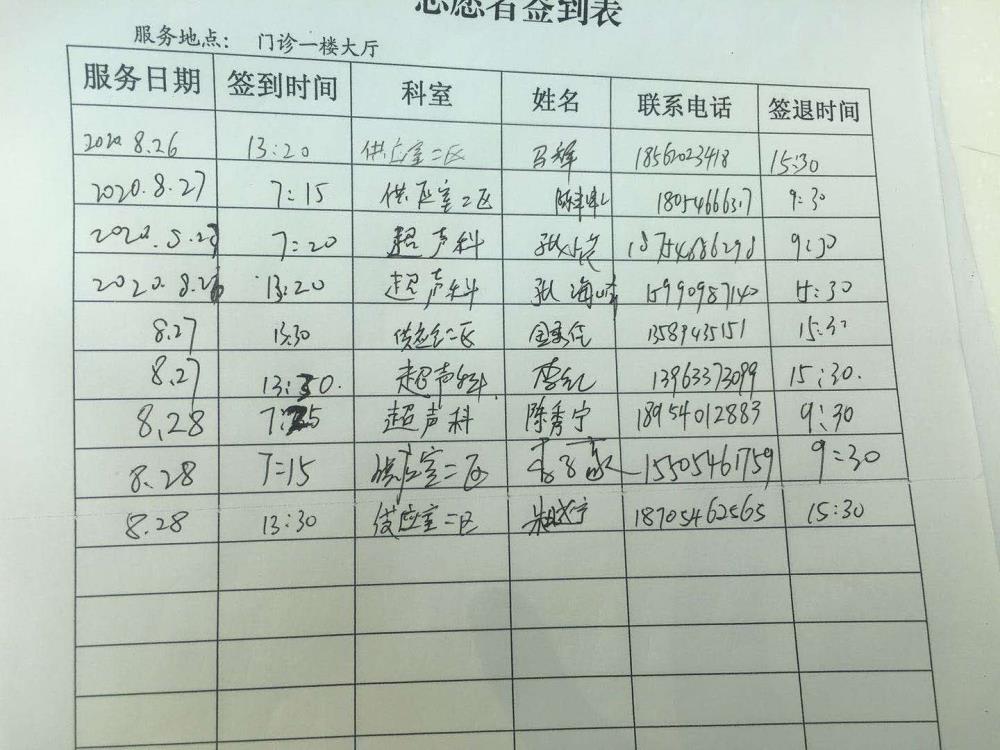 志愿者签到表
服务地点： 门诊一楼大厅
服务日期 签到时间 科室 姓名 联系电话 签退时间
2020 8.26 13:20 供应室二区 马辉 18562023418 15:30
2020.8.27 7:15 供应室二区 18054666317 9:30
7:20 超声科 18754686291 9:30
2020.8.26 13:20 超声科 张海峰 15990987140 15:30
8.27 13:30 供应室二区 13589435151 15:30
8.27 13:30. 超声科 李红 13963373099 15:30.
8,28 超声科 陈秀宁 18954012883 9:30
8.28 7:15 供应室二区 15505461759 9:30
8.28 13:30 供应室二区 18705462565 15:30